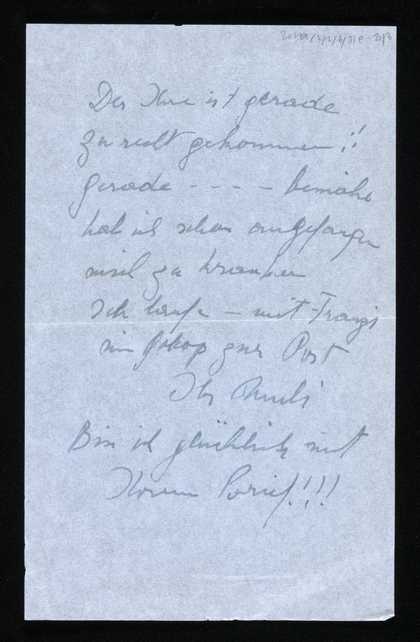 Der Ihre ist gerade
zu recht gekommen!!
gerade - - - - beinahe
hab ich schon angefangen
mich zu kränken
Ich laufe - mit Franzi
im Galopp zur Post
Ihr
Bin ich glücklich mit
Ihrem Brief!!!